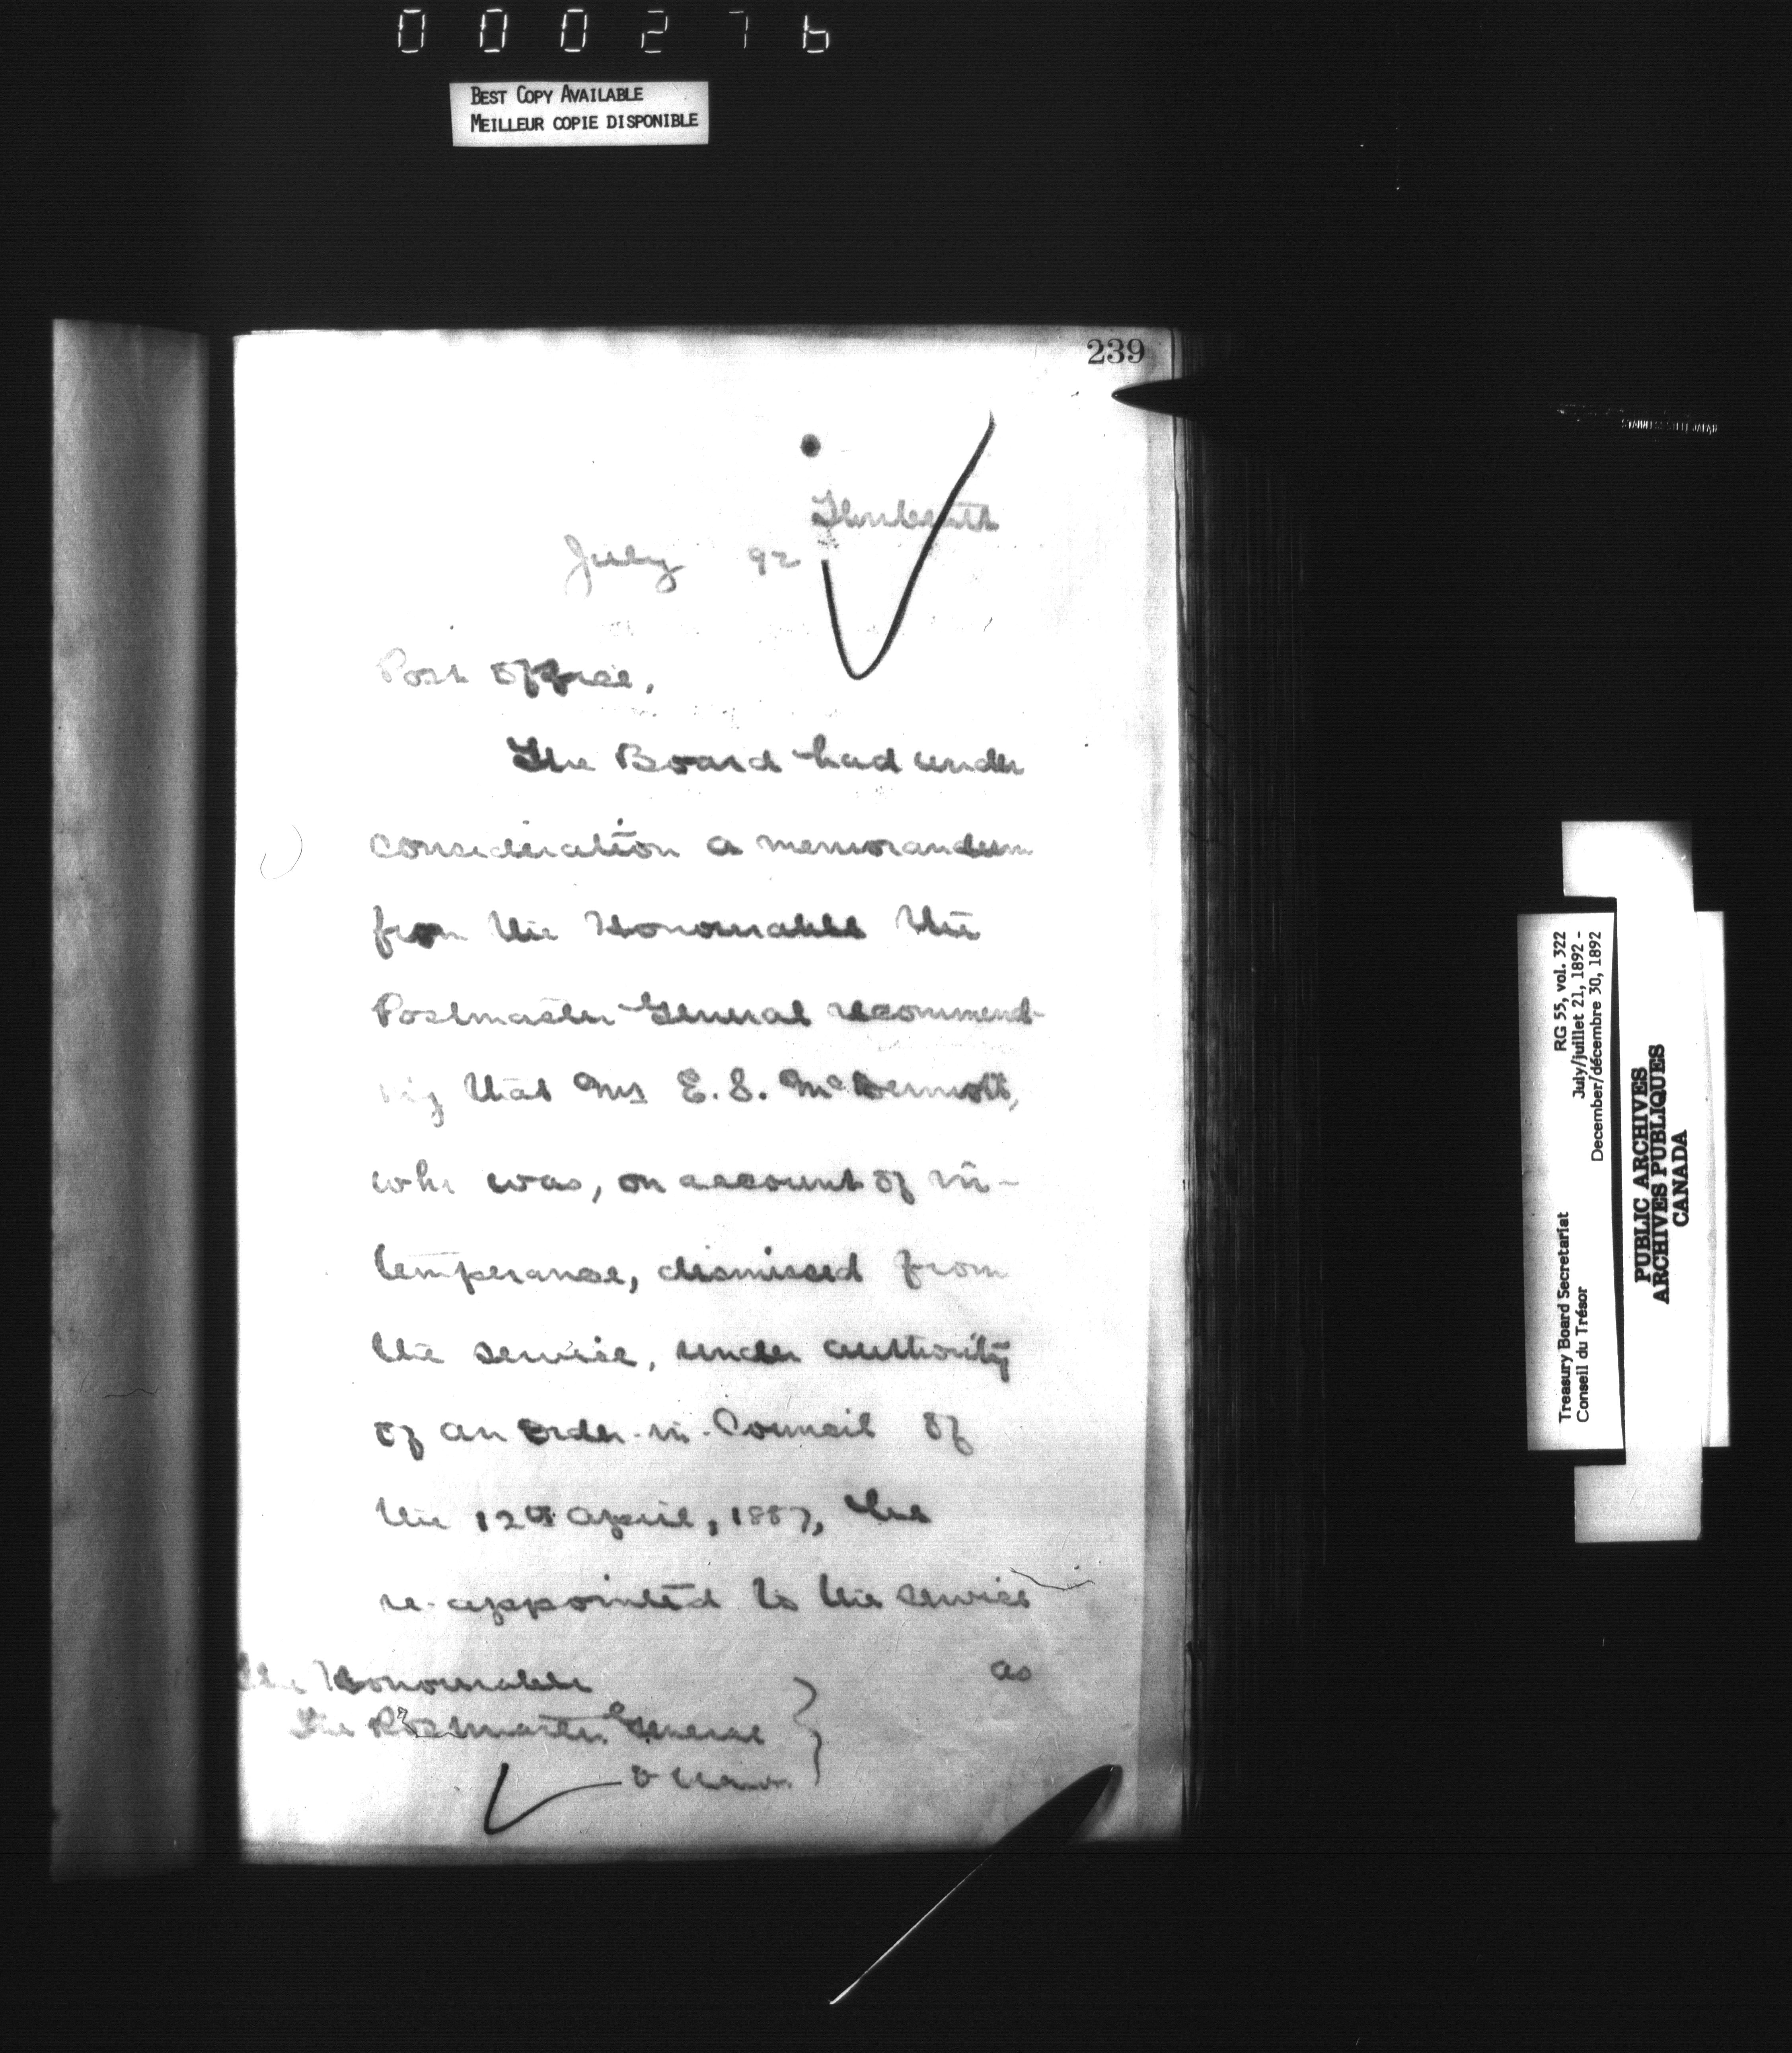 000276
BEST COPY AVAILABLE
MEILLEUR COPIE DISPONIBLE
239
July 92
Post Office,
The Board had under
consideration a memorandum
from the Honourable the
Postmaster General recommend-
ing that Mr E. S. McDermott,
who was, on account of in-
temperance, dismissed from
the service, under authority
of an Order-in-Council of
the 12th April, 1887, be
re-appointed to the service
as
The Honourable
The Postmaster General
Ottawa
RG 55, vol. 322
July/juillet 21, 1892 -
December/décembre 30, 1892
Treasury Board Secretariat
Conseil du Trésor
PUBLIC ARCHIVES
ARCHIVES PUBLIQUES
CANADA